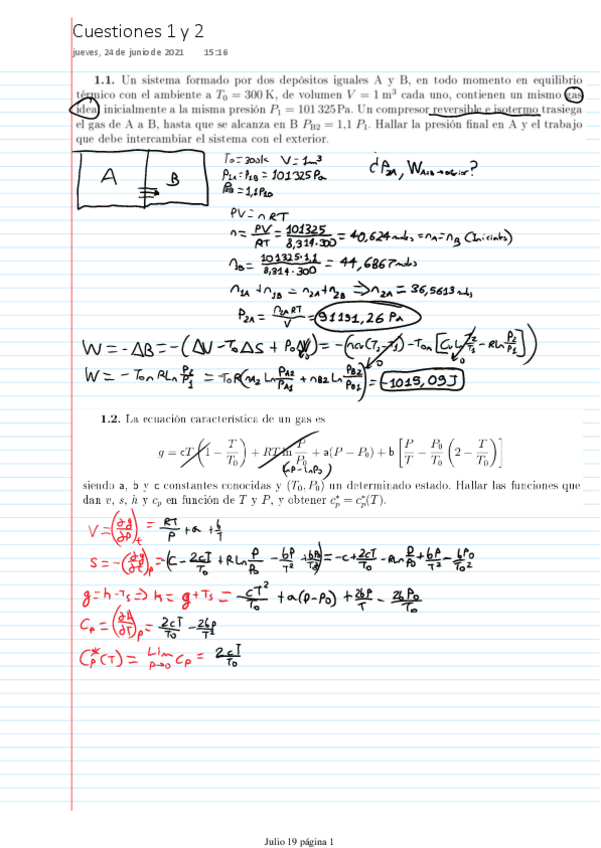 Cuestiones 1 y 2
jueves, 24 de junio de 2021 15:16
1.1. Un sistema formado por dos depósitos iguales A y B, en todo momento en equilibrio
térmico con el ambiente a T₀ = 300 K, de volumen V = 1 m³ cada uno, contienen un mismo gas
ideal inicialmente a la misma presión P₁ = 101 325 Pa. Un compresor reversible e isotermo trasiega
el gas de A a B, hasta que se alcanza en B P_B2 = 1,1 P₁. Hallar la presión final en A y el trabajo
que debe intercambiar el sistema con el exterior.
A B
T₀ = 300k V = 1m³
P₁A = P₁B = 101325 Pa
P₂B = 1,1 P₁B
¿P₂A, W
PV = nRT
n = PV/RT = 101325/8,314·300 = 40,624 moles = nA = nB (Iniciales)
n₂B = 101325·1,1/8,314·300 = 44,6867 moles
n₁A + n₁B = n₂A + n₂B ⟹ n₂A = 36,5613 mols
P₂A = n₂A RT/V = 91191,26 Pa
W = -ΔB = -(ΔU - T₀ΔS + P₀ΔV) = -(ncv(T₂-T₁) - T₀n[Cv Ln T₂/T₁ - R Ln P₂/P₁])
W = -T₀n R Ln P₂/P₁ = T₀R(n₂ Ln PA2/PA1 + nB2 Ln PB2/PB1) = -1015,09 J
1.2. La ecuación característica de un gas es
g = cT(1 - T/T₀) + RT ln P/P₀ + a(P - P₀) + b[P/T - P₀/T₀(2 - T/T₀)]
(LnP-LnP₀)
siendo a, b y c constantes conocidas y (T₀, P₀) un determinado estado. Hallar las funciones que
dan v, s, h y cp en función de T y P, y obtener cp* = cp*(T).
V = (∂g/∂P)t = RT/P + a + b/T
S = -(∂g/∂T)p = -(c - 2cT/T₀ + R Ln P/P₀ - bP/T² + bP₀/T₀²) = -c + 2cT/T₀ - R Ln P/P₀ + bP/T² - bP₀/T₀²
g = h - Ts ⟹ h = g + Ts = cT²/T₀ + a(P-P₀) + 2bP/T - 2bP₀/T₀
Cp = (∂h/∂T)p = 2cT/T₀ - 2bP/T²
Cp*(T) = Lim p→0 Cp = 2cT/T₀
Julio 19 página 1